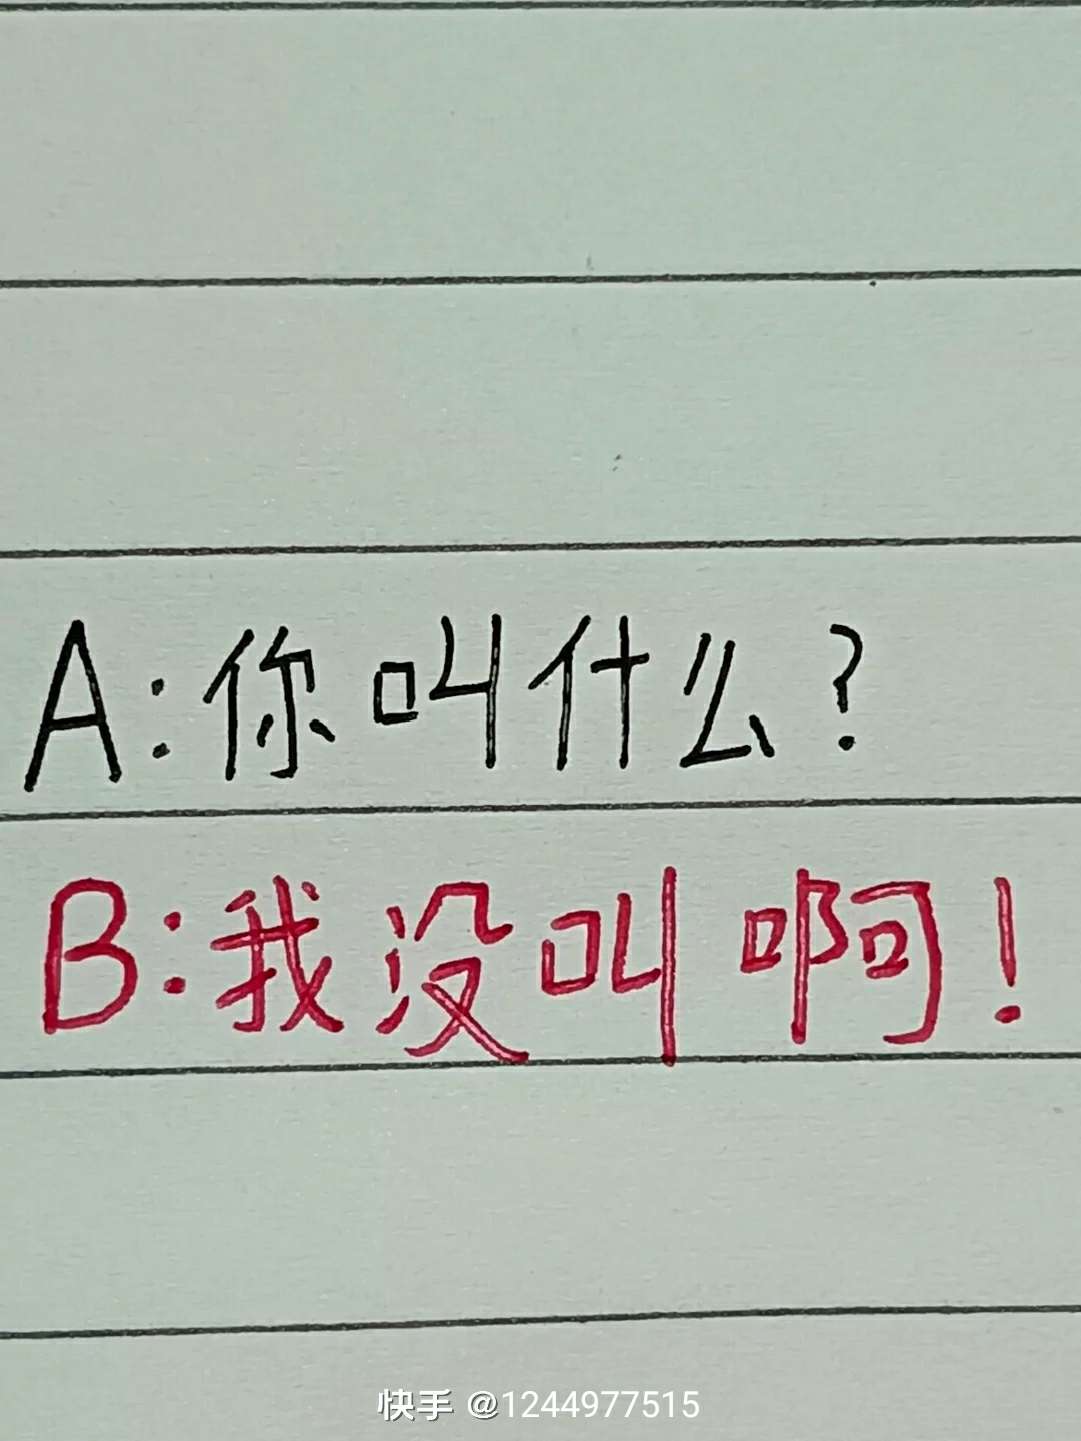 A:你叫什么?
B:我没叫啊!
快手 @1244977515